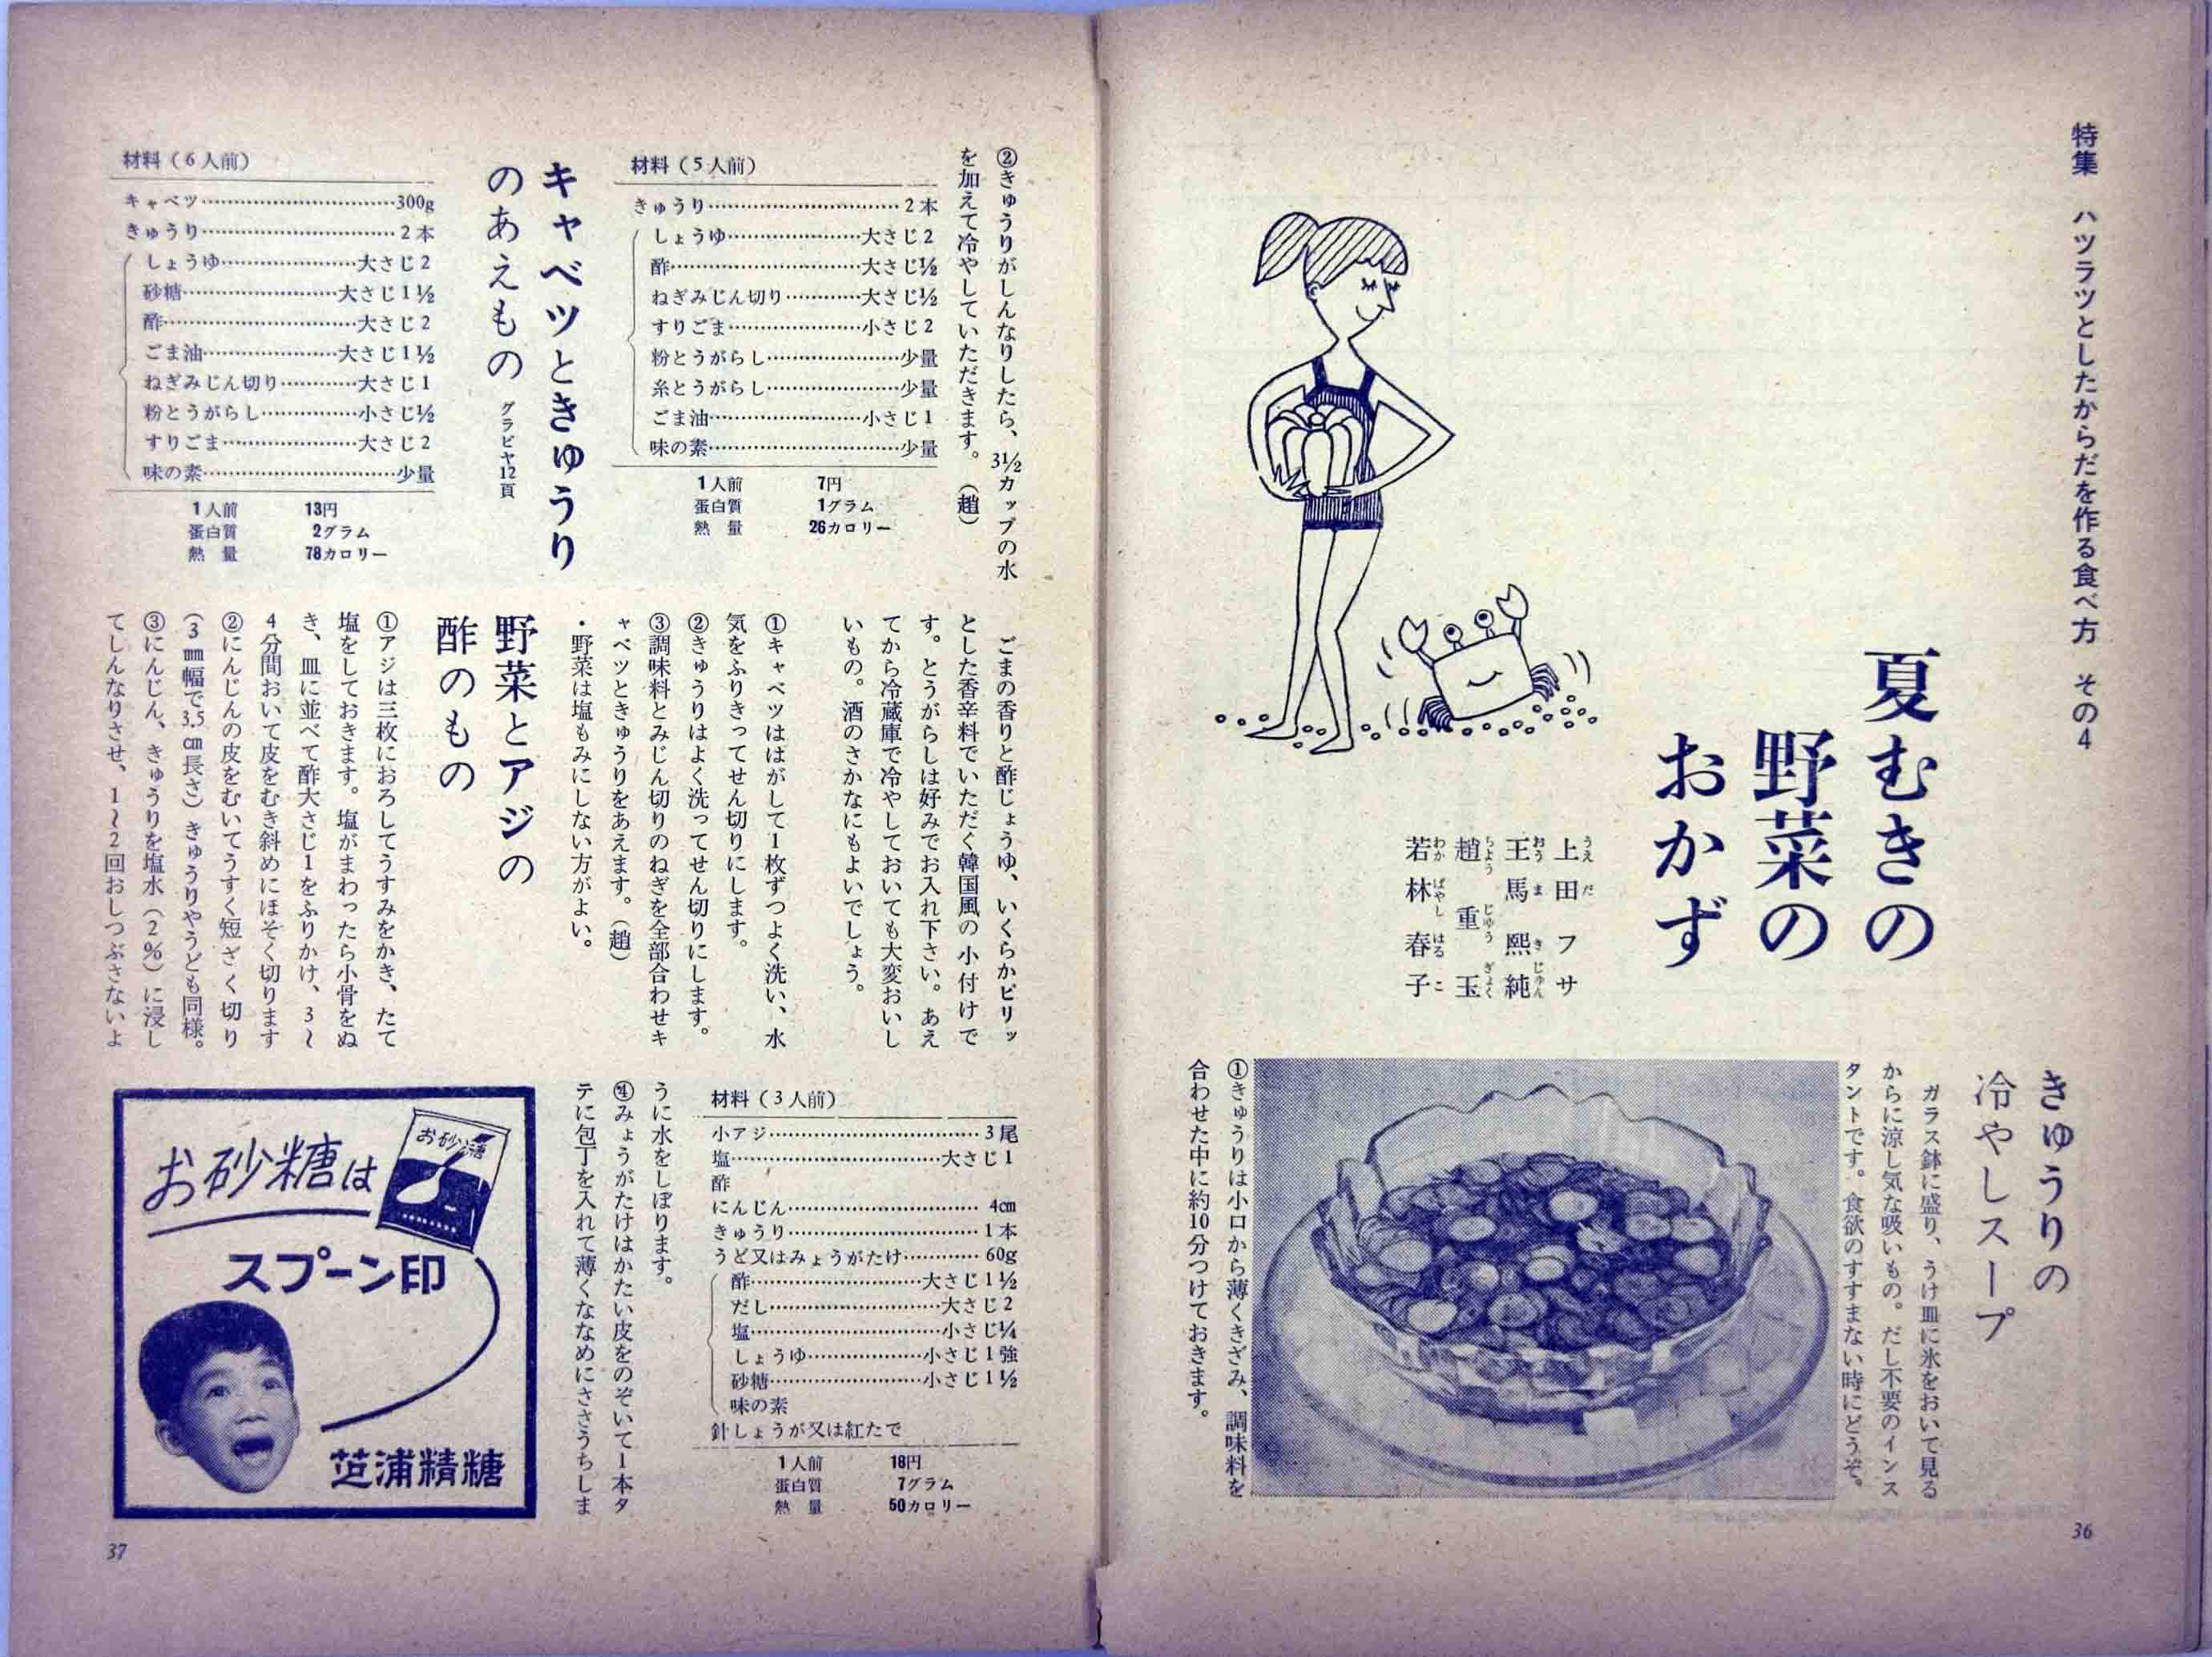 特集　ハツラツとしたからだを作る食べ方　その4
夏むきの
野菜の
おかず
上田フサ
うえだ
王馬熙純
おうまきじゅん
趙重玉
ちょうじゅうぎょく
若林春子
わかばやしはるこ
きゅうりの
冷やしスープ
ガラス鉢に盛り、うけ皿に氷をおいて見る
からに涼し気な吸いもの。だし不要のインス
タントです。食欲のすすまない時にどうぞ。
①きゅうりは小口から薄くきざみ、調味料を
合わせた中に約10分つけておきます。
36
②きゅうりがしんなりしたら、3½カップの水
を加えて冷やしていただきます。（趙）
材料（5人前）
きゅうり…………………………2本
しょうゆ…………………大さじ2
酢…………………………大さじ½
ねぎみじん切り…………大さじ½
すりごま…………………小さじ2
粉とうがらし…………………少量
糸とうがらし…………………少量
ごま油……………………小さじ1
味の素…………………………少量
1人前　7円
蛋白質　1グラム
熱量　26カロリー
キャベツときゅうり
のあえもの　グラビヤ12頁
材料（6人前）
キャベツ…………………………300g
きゅうり…………………………2本
しょうゆ…………………大さじ2
砂糖……………………大さじ1½
酢…………………………大さじ2
ごま油…………………大さじ1½
ねぎみじん切り…………大さじ1
粉とうがらし……………小さじ½
すりごま…………………大さじ2
味の素…………………………少量
1人前　13円
蛋白質　2グラム
熱量　78カロリー
ごまの香りと酢じょうゆ、いくらかピリッ
とした香辛料でいただく韓国風の小付けで
す。とうがらしは好みでお入れ下さい。あえ
てから冷蔵庫で冷やしておいても大変おいし
いもの。酒のさかなにもよいでしょう。
①キャベツははがして1枚ずつよく洗い、水
気をふりきってせん切りにします。
②きゅうりはよく洗ってせん切りにします。
③調味料とみじん切りのねぎを全部合わせキ
ャベツときゅうりをあえます。（趙）
・野菜は塩もみにしない方がよい。
野菜とアジの
酢のもの
①アジは三枚におろしてうすみをかき、たて
塩をしておきます。塩がまわったら小骨をぬ
き、皿に並べて酢大さじ1をふりかけ、3〜
4分間おいて皮をむき斜めにほそく切ります
②にんじんの皮をむいてうすく短ざく切り
（3㎜幅で3.5㎝長さ）きゅうりやうども同様。
③にんじん、きゅうりを塩水（2%）に浸し
てしんなりさせ、1〜2回おしつぶさないよ
材料（3人前）
小アジ……………………………3尾
塩……………………………大さじ1
酢
にんじん…………………………4㎝
きゅうり…………………………1本
うど又はみょうがたけ…………60g
酢………………………大さじ1½
だし………………………大さじ2
塩…………………………小さじ¼
しょうゆ………………小さじ1強
砂糖……………………小さじ1½
味の素
針しょうが又は紅たで
1人前　18円
蛋白質　7グラム
熱量　50カロリー
うに水をしぼります。
④みょうがたけはかたい皮をのぞいて1本タ
テに包丁を入れて薄くななめにささうちしま
お砂糖は
お砂糖
スプーン印
芝浦精糖
37